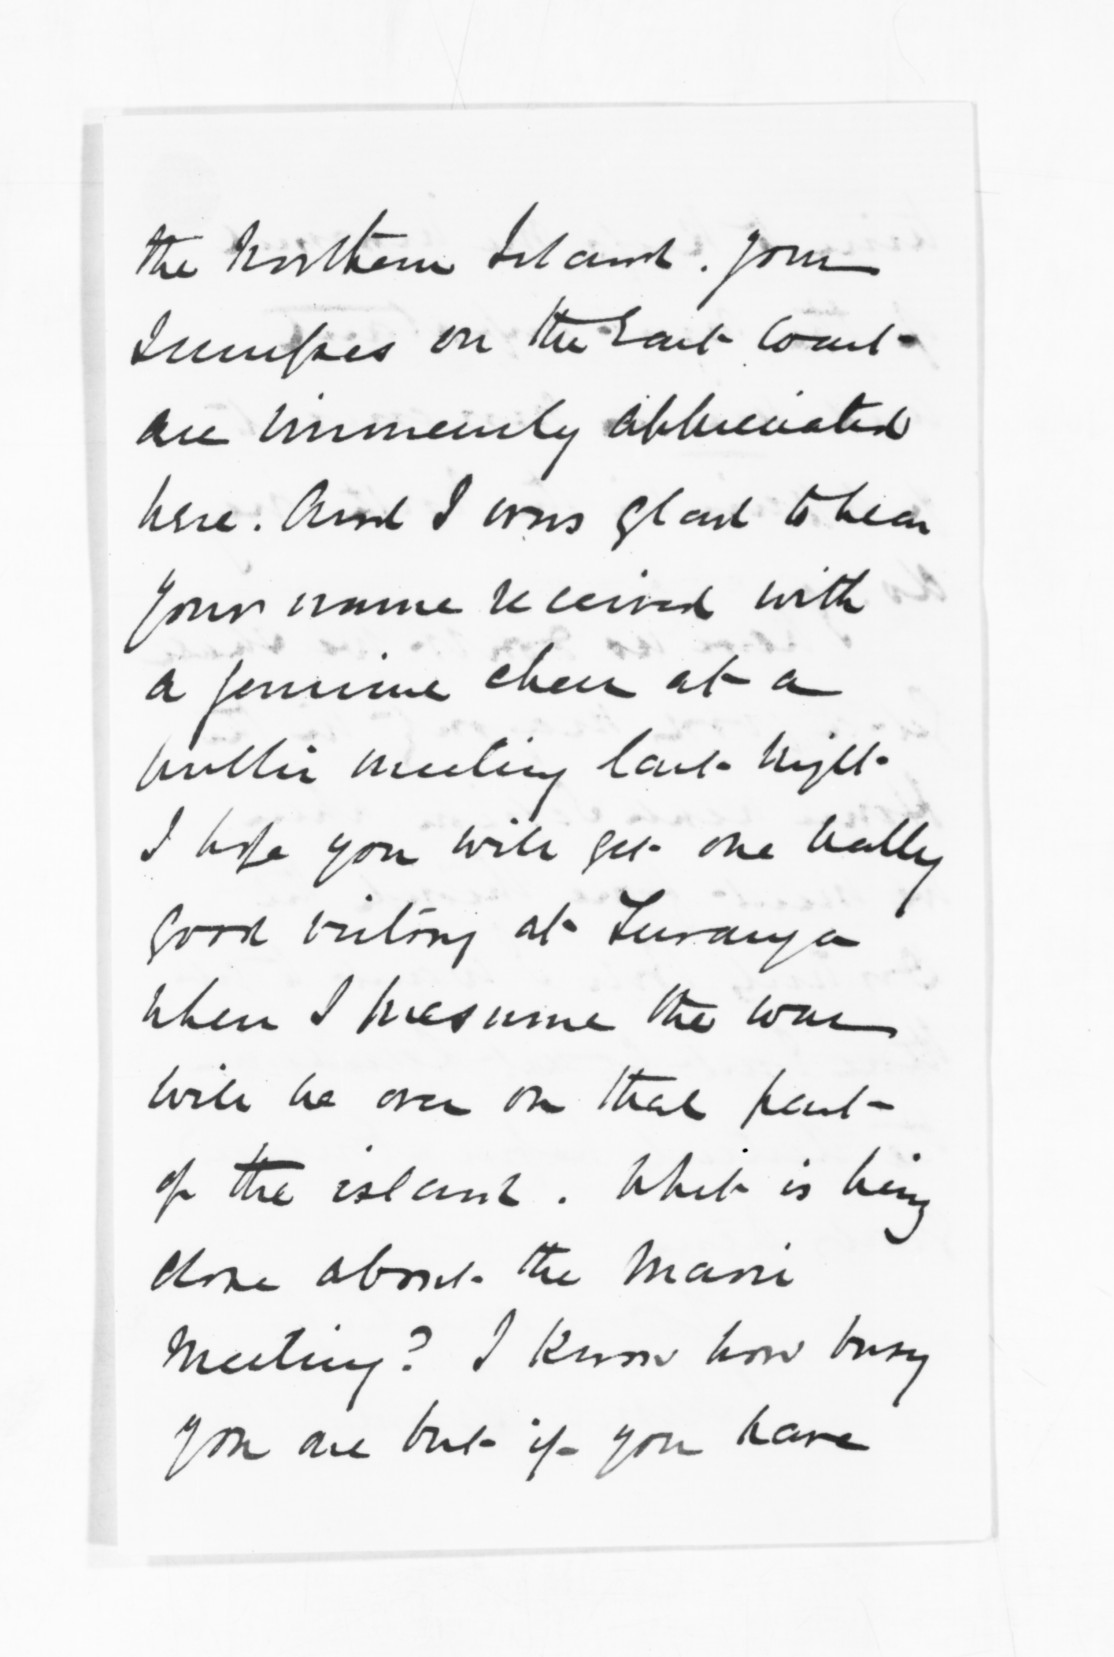 the Northern Island. Your
Successes on the East Coast
are immensely appreciated
here. And I was glad to hear
your name received with
a genuine cheer at a
public meeting last night
I hope you will get one really
good victory at Turanga
when I presume the war
will be over on that part
of the island. What is being
done about the Maori
Meeting? I know how busy
you are but if you have